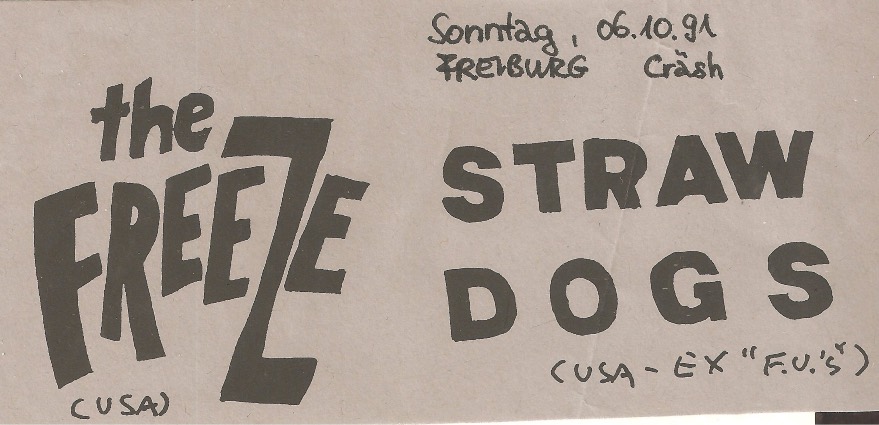 Sonntag, 06.10.91
FREIBURG Cräsh
the
FREEZE
(USA)
STRAW
DOGS
(USA - EX "F.U.'s")